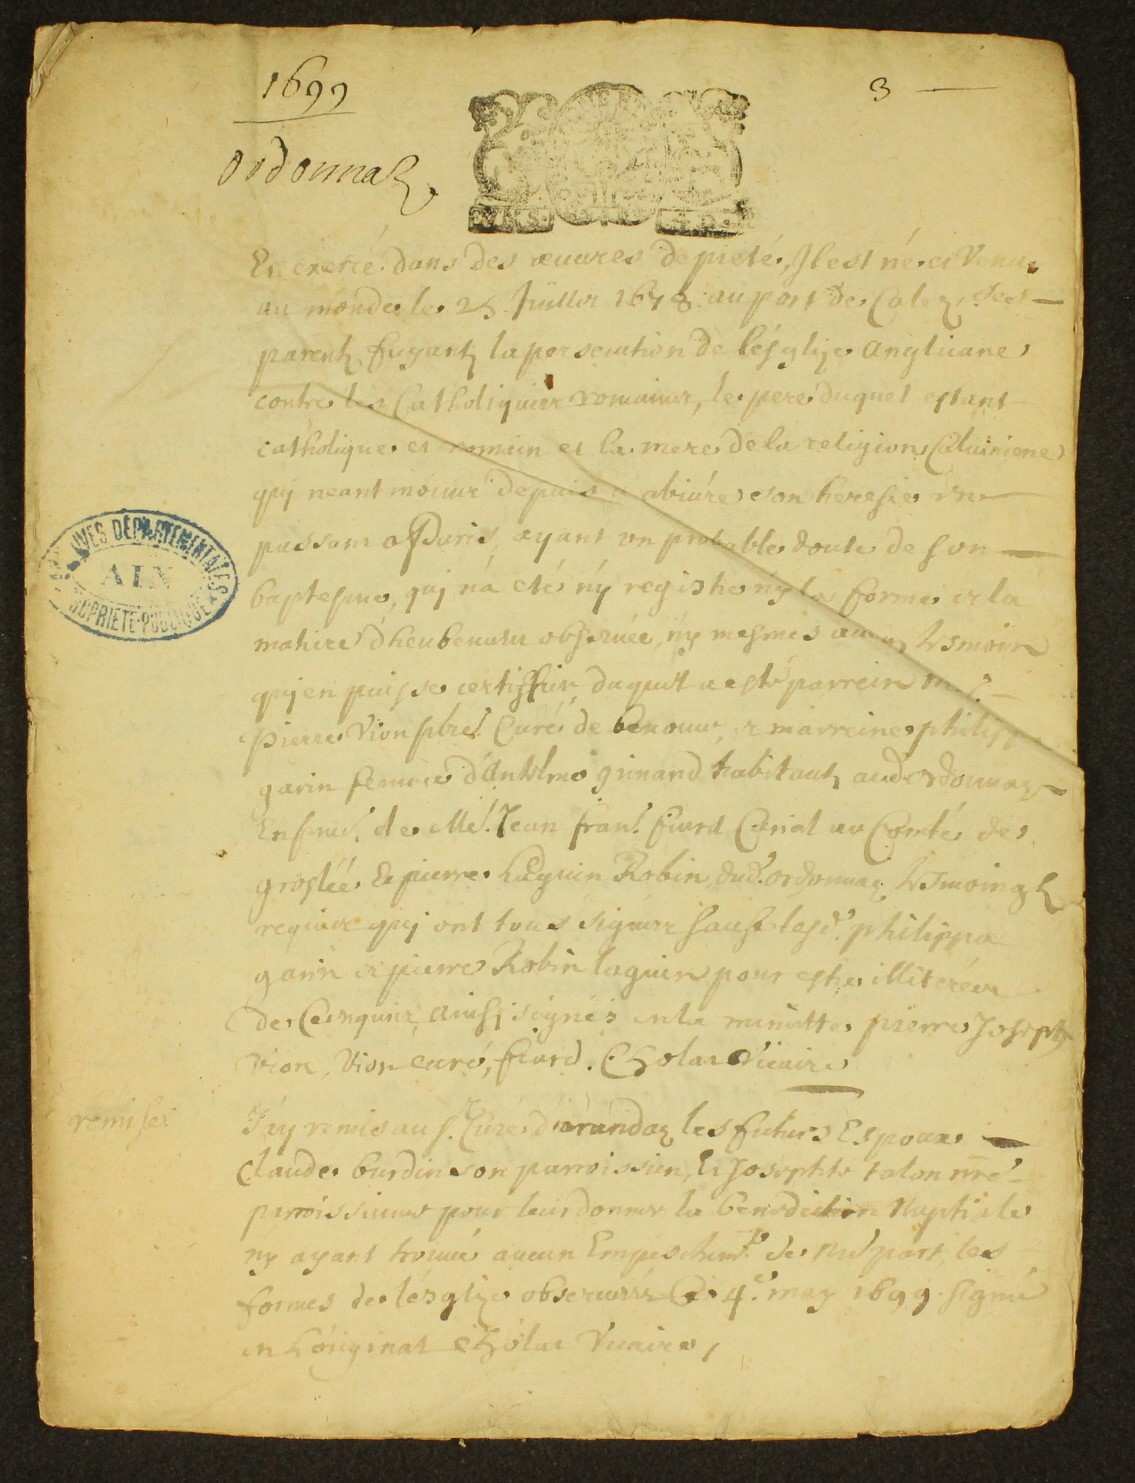 1699
3
ordonnaz
Et exercé dans des œuvres de pieté, Il est né et Venu
au monde le 25 Juillet 1678 au port de Calez, ses
parentz fuyantz la persecution de l'ésglize Anglicane
contre les Catholiques romains, le pere duquel estant
catholique et romain et la mere de la religion Caluiniene
quj neant moins depuis a abiuré son heresie en
passant a Paris, ayant un probable doute de son
baptesme, quj n'a eté nÿ registré nÿ la forme et la
matiere observée, nÿ mesmes aucun tesmoin
quj en puisse certiffier, duquel a esté parrein m.
Pierre Vion pbre Curé de benonce, et marreine philippa
garin femme d'Antelme gunand habitantz aud ordonnaz
En pnce de Me Jean fran. fiard Curial au Comté de
groslée Et pierre Robin dud. ordonnaz tesmoingz
requis quj ont tous signez sauf lesd. philippa
garin et pierre Robin laguin pour estre illiterez
de ce enquis, ainsy signés en la minutte pierre Joseph
Vion, Vion curé, fiard. Cholat Vicaire
remises
J'ay remis au s. Curé d'arandaz les futurs Espoux
Claude burdin son parroissien, Et Josephte talon nre
parroissienne pour leur donner la benediction Nuptiale
ny ayant trouué aucun Empeschemt de nre part, les
formes de l'ésglize obseruées Ce 4e may 1699 signé
en L'original Cholat Vicaire,
ARCHIVES DÉPARTEMENTALES
AIN
PROPRIÉTÉ PUBLIQUE